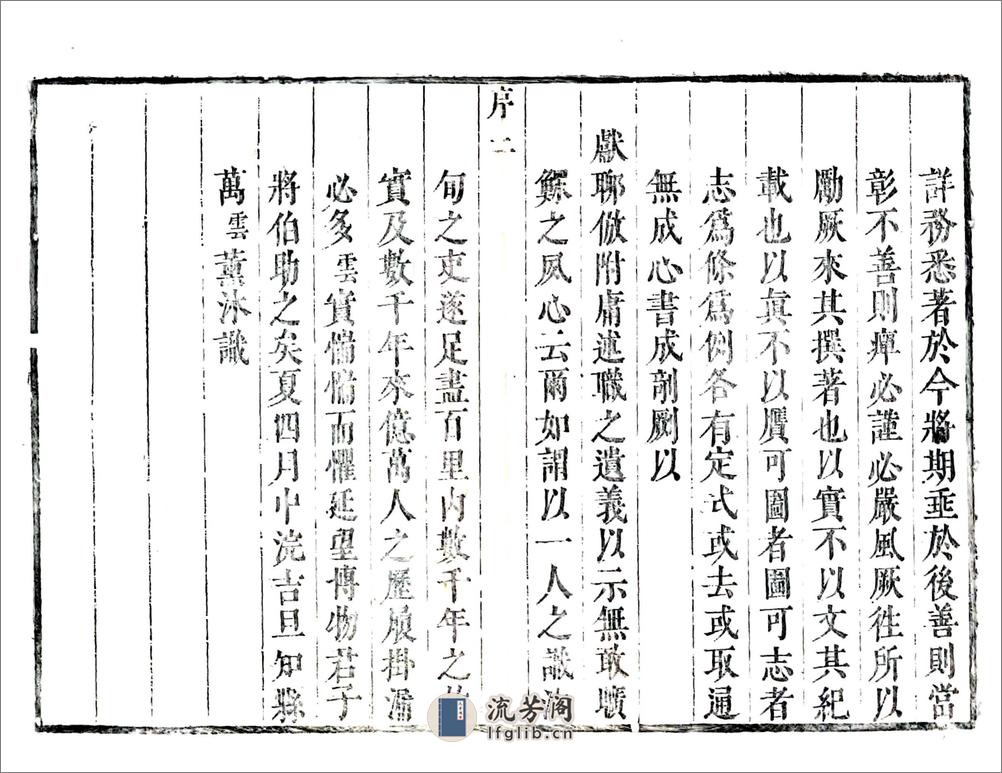 詳務悉著於今將期垂於後善則當
彰不善則癉必謹必嚴風厥徃所以
勵厥來其撰著也以實不以文其紀
載也以眞不以贋可圖者圖可志者
志爲條爲例各有定式或去或取通
無成心書成剞劂以
獻聊倣附庸述職之遺義以示無敢曠
鰥之夙心云爾如謂以一人之識
序二
旬之吏遂足盡百里內數千年之
實及數千年來億萬人之歷履掛漏
必多雲實惴惴而懼延望博物君子
將伯助之矣夏四月中浣吉旦知縣
萬雲薰沐識
流芳阁
lfglib.cn